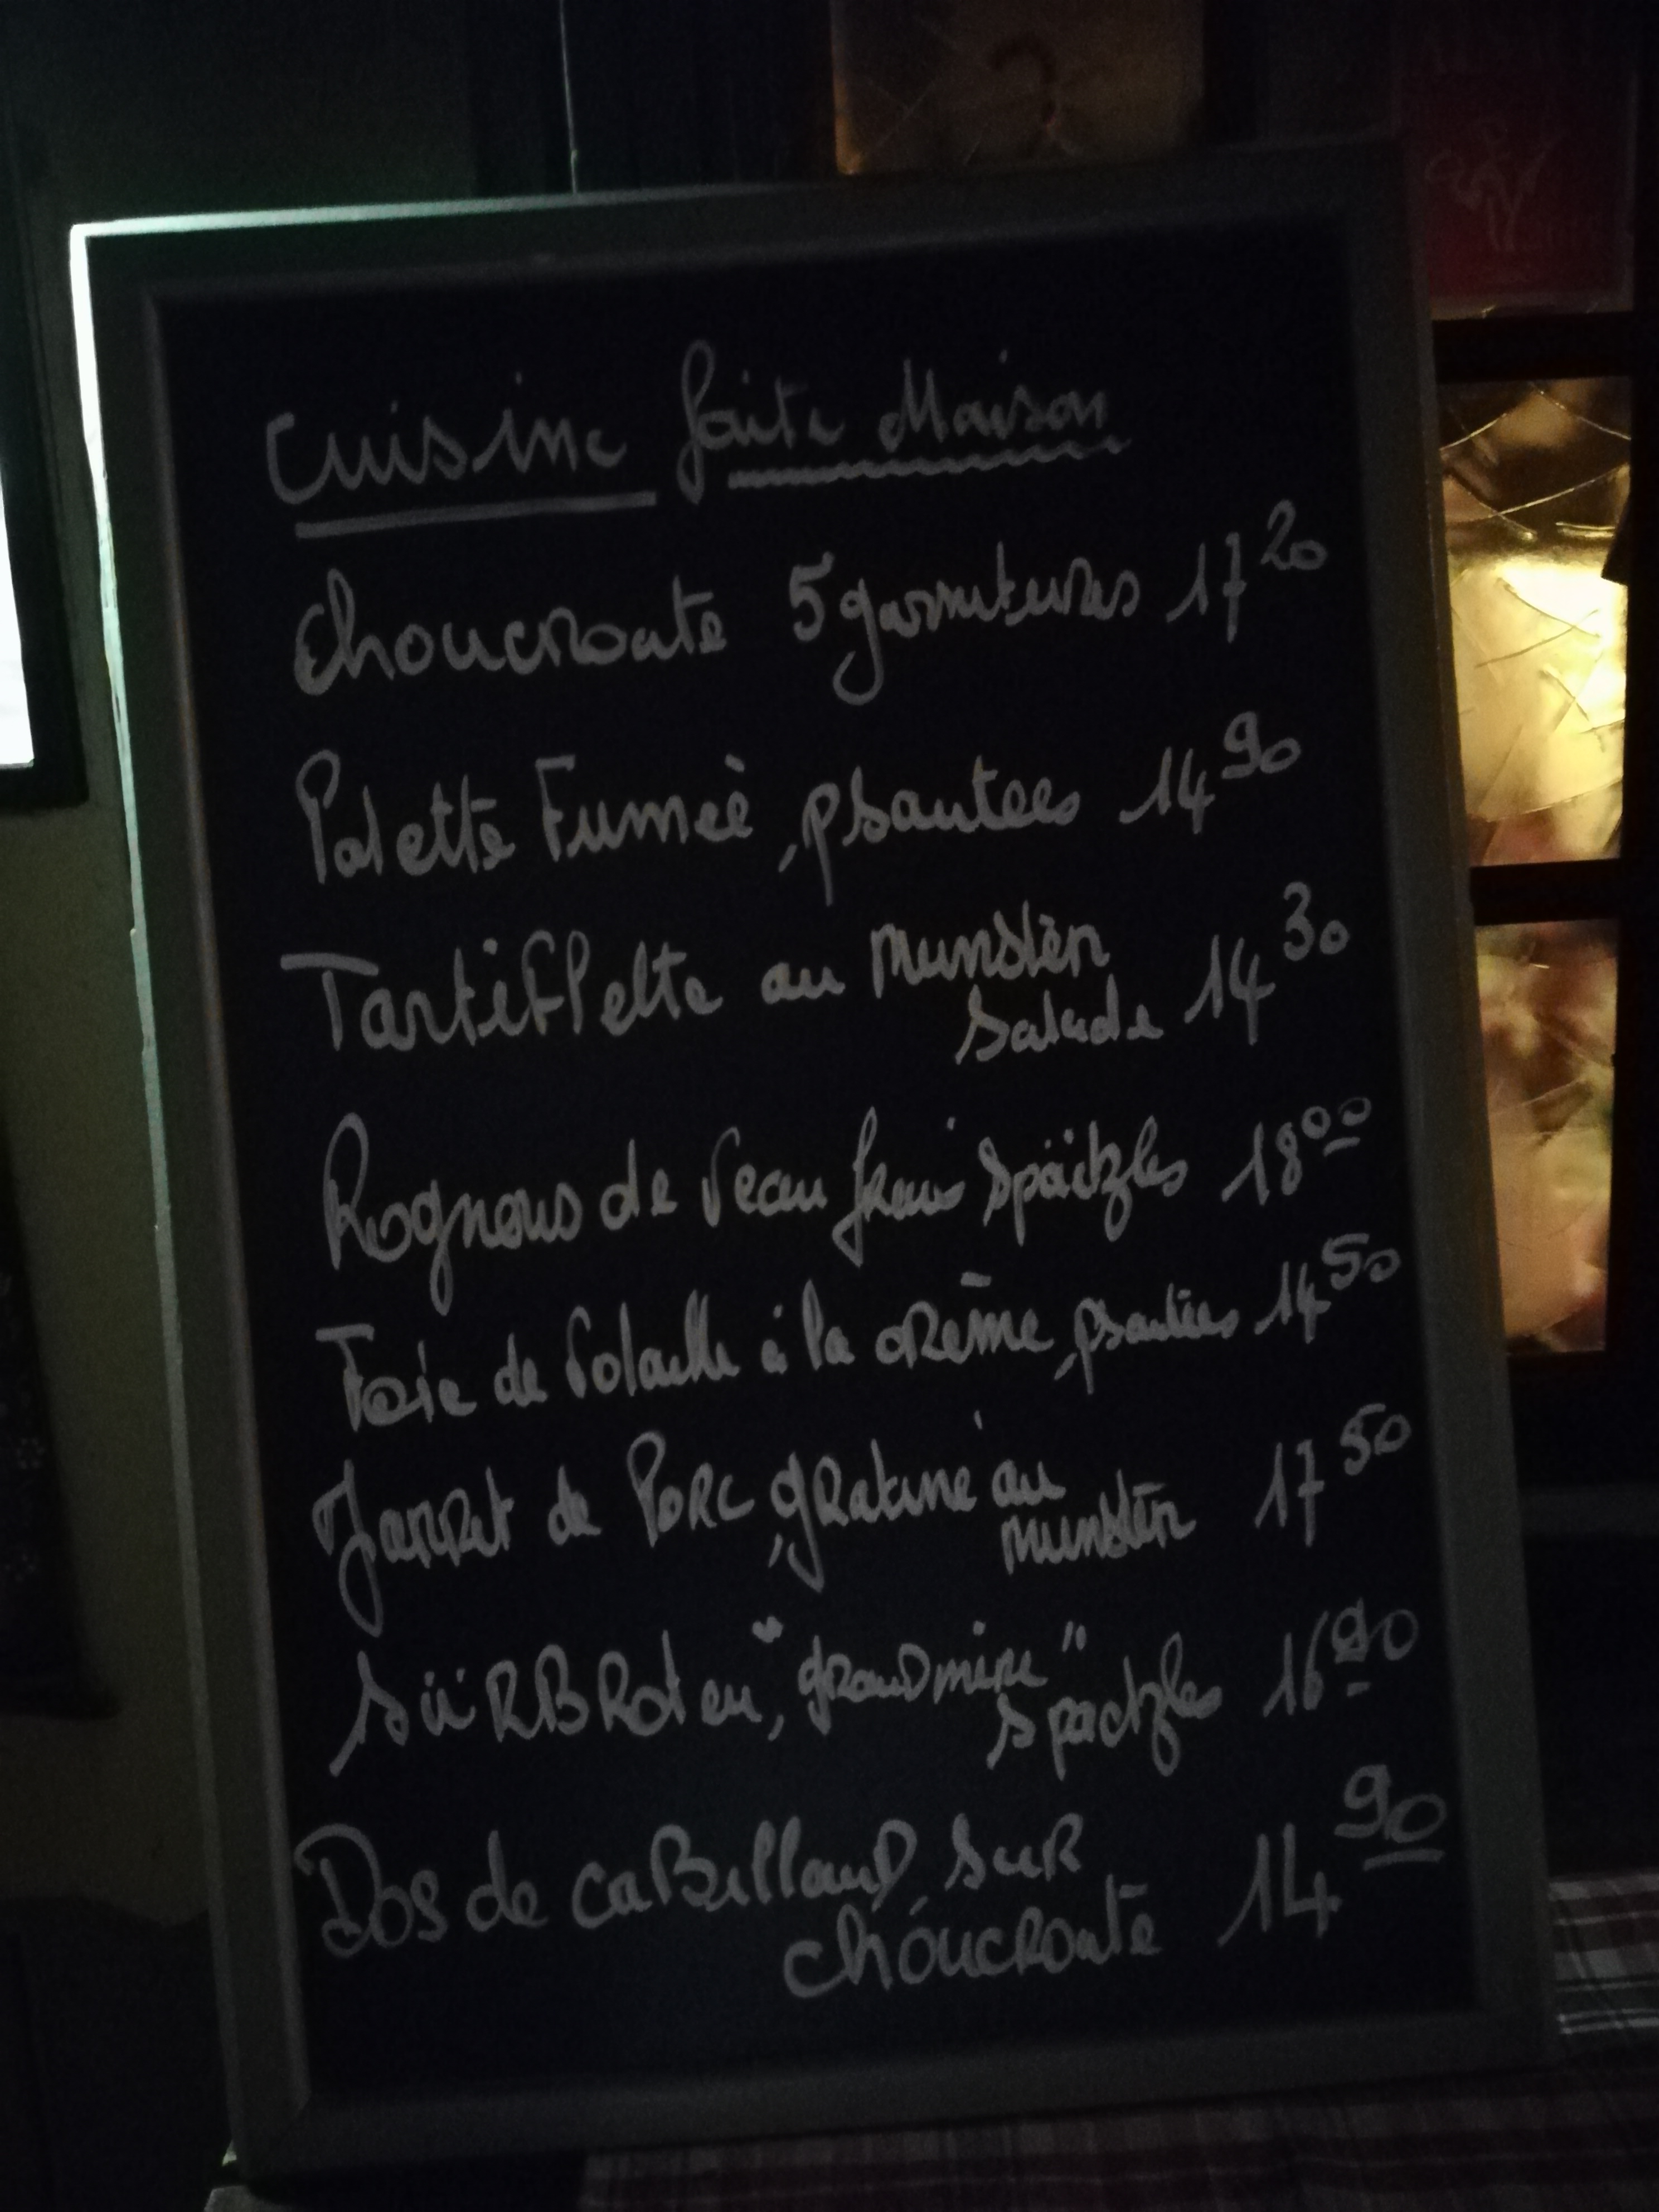 Cuisine faite Maison
Choucroute 5 garnitures 17 20
Palette Fumée, psautées 14 90
Tartifflette au Munstèr
salade 14 30
Rognons de Veau frais Späetzles 18 00
Foie de Volaille à la crème, psautées 14 50
Jarret de Porc, gratiné au
munstèr 17 50
SüRBRoten, "grandmère"
Spaetzles 16 90
Dos de caBillauD, SuR
chouCRoute 14 90